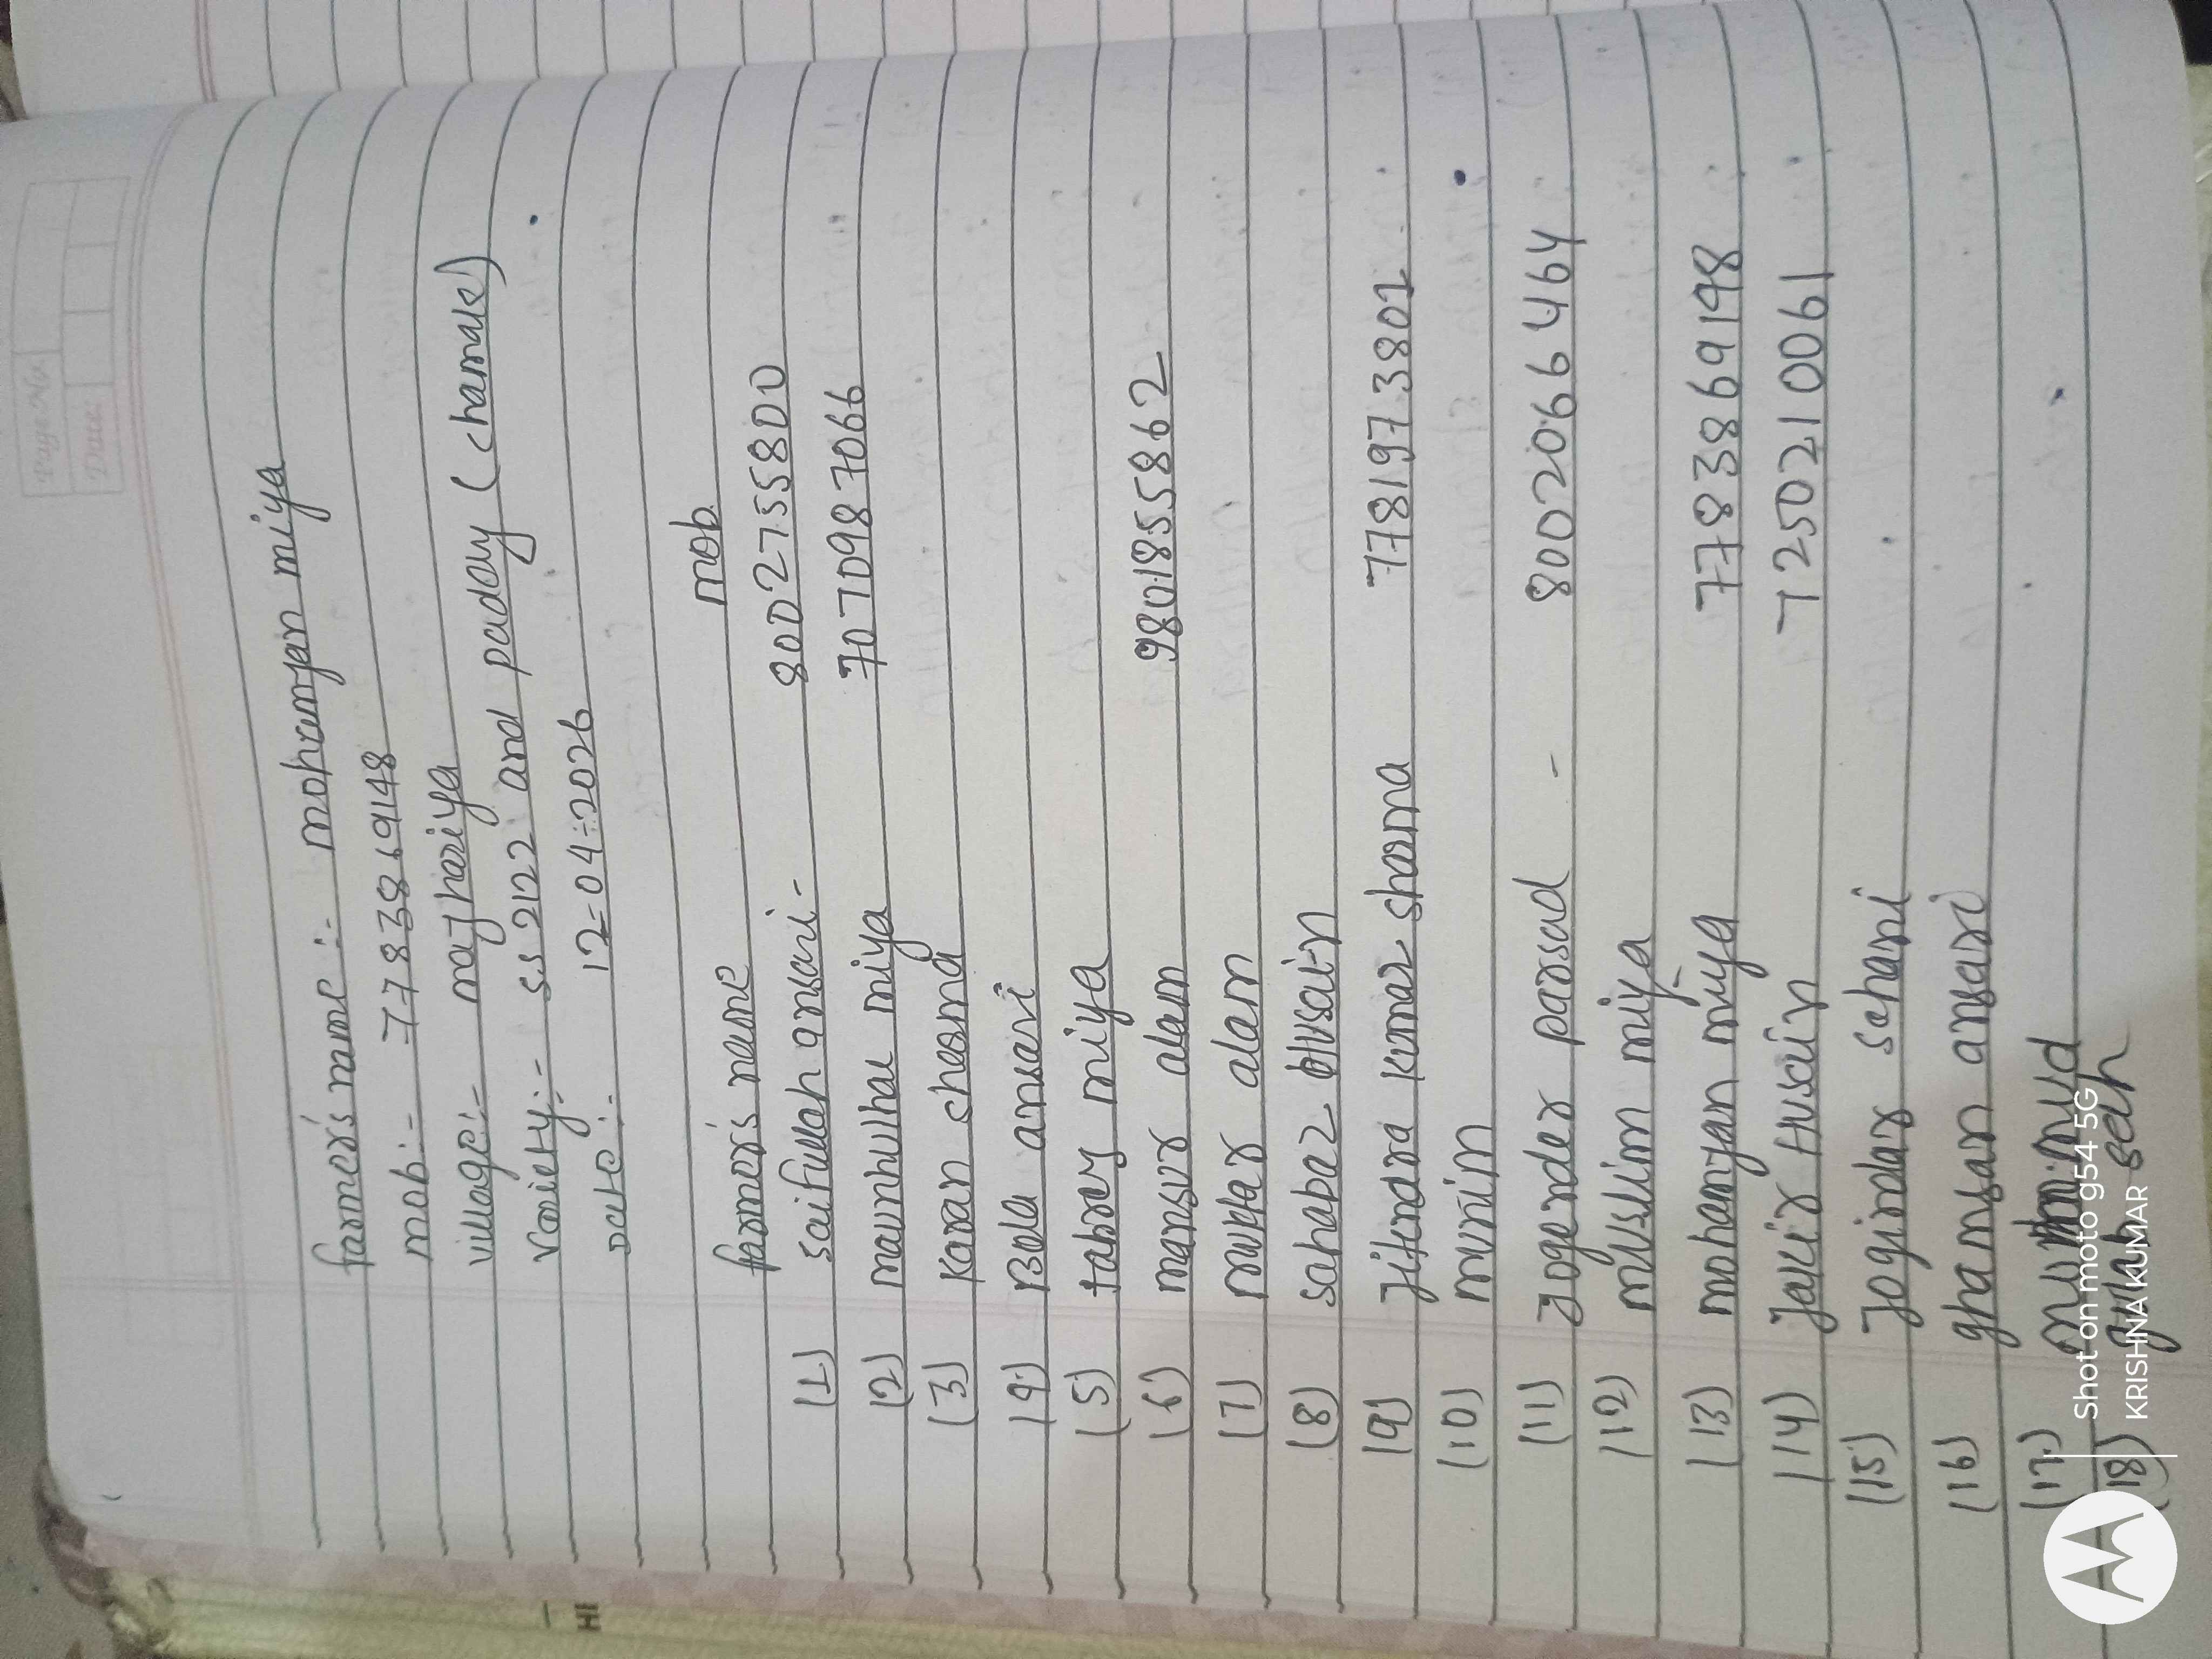 Page No.
Date
farmer's name :- mohamyan miya
mob :- 7783869148
village :- majhariya
Variety :- SS 2122 and paddy (chamak)
Date :- 12-04-2026
farmer's name mob.
(1) saifullah ansari - 8002755800
(2) mainhulhai miya 7070987066
(3) Karan sharma
(4) Bela ansari
(5) tabrej miya
(6) mansur alam 9801855862
(7) muktar alam
(8) sahabaz Husain
(9) jitendra kumar sharma 7781973801
(10) munim
(11) Jogender parsad - 8002066464
(12) muslim miya
(13) mohamyan miya 7783869148
(14) Jakir Husain 7250210061
(15) Jogindar sehani
(16) ghamsan ansari
(17)
(18) gulab sah
HI
Shot on moto g54 5G
KRISHNA KUMAR